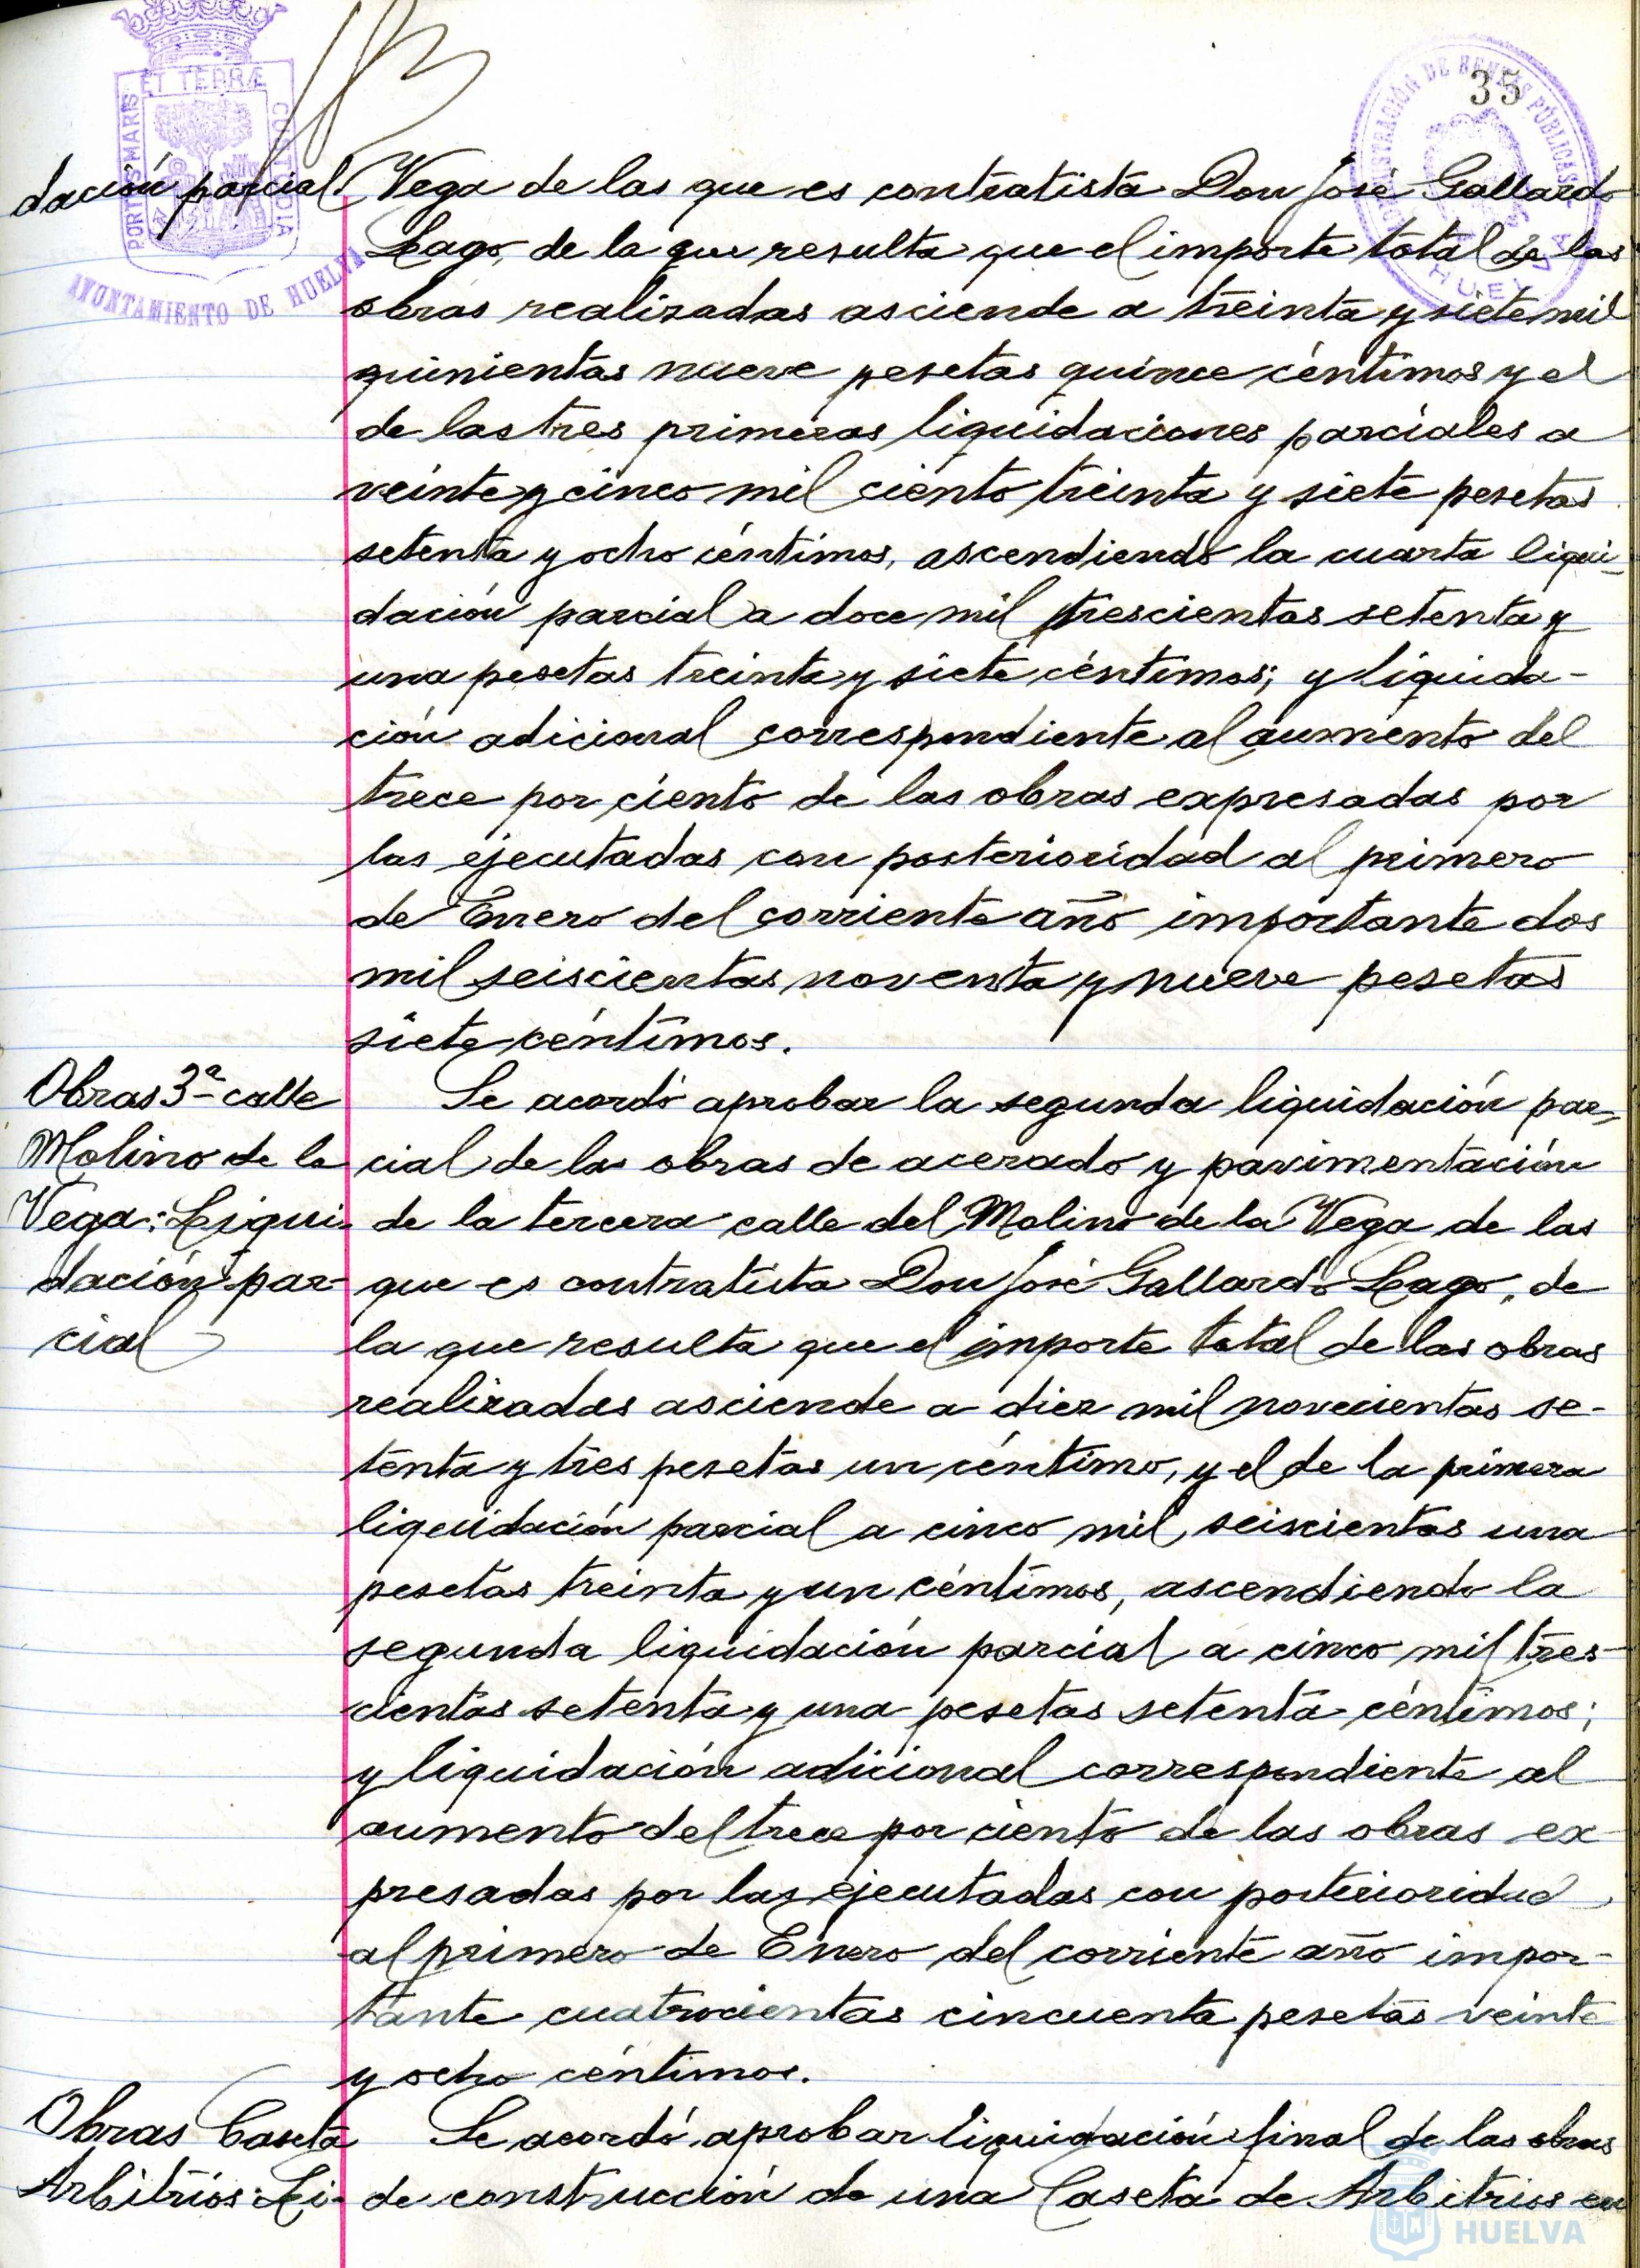 35
PORTUS MARIS ET TERRÆ CUSTODIA
AYUNTAMIENTO DE HUELVA
ADMINISTRACIÓN DE RENTAS PÚBLICAS
HUELVA
dación parcial. Vega de las que es contratista Don José Gallardo
Lago, de la que resulta que el importe total de las
obras realizadas asciende a treinta y siete mil
quinientas nueve pesetas quince céntimos y el
de las tres primeras liquidaciones parciales a
veinte y cinco mil ciento treinta y siete pesetas
setenta y ocho céntimos, ascendiendo la cuarta liqui-
dación parcial a doce mil trescientas setenta y
una pesetas treinta y siete céntimos; y liquida-
ción adicional correspondiente al aumento del
trece por ciento de las obras expresadas por
las ejecutadas con posterioridad al primero
de Enero del corriente año importante dos
mil seiscientas noventa y nueve pesetas
siete céntimos.
Obras 3ª calle
Molino de la
Vega: Liqui-
dación par-
cial
Se acordó aprobar la segunda liquidación par-
cial de las obras de acerado y pavimentación
de la tercera calle del Molino de la Vega de las
que es contratista Don José Gallardo Lago, de
la que resulta que el importe total de las obras
realizadas asciende a diez mil novecientas se-
tenta y tres pesetas un céntimo, y el de la primera
liquidación parcial a cinco mil, seiscientas una
pesetas treinta y un céntimos, ascendiendo la
segunda liquidación parcial a cinco mil tres-
cientas setenta y una pesetas setenta céntimos;
y liquidación adicional correspondiente al
aumento del trece por ciento de las obras ex-
presadas por las ejecutadas con posterioridad
al primero de Enero del corriente año impor-
tante cuatrocientas cincuenta pesetas veinte
y ocho céntimos.
Obras Caseta
Arbitrios: Li-
Se acordó aprobar liquidación final de las obras
de construcción de una Caseta de Arbitrios en
HUELVA